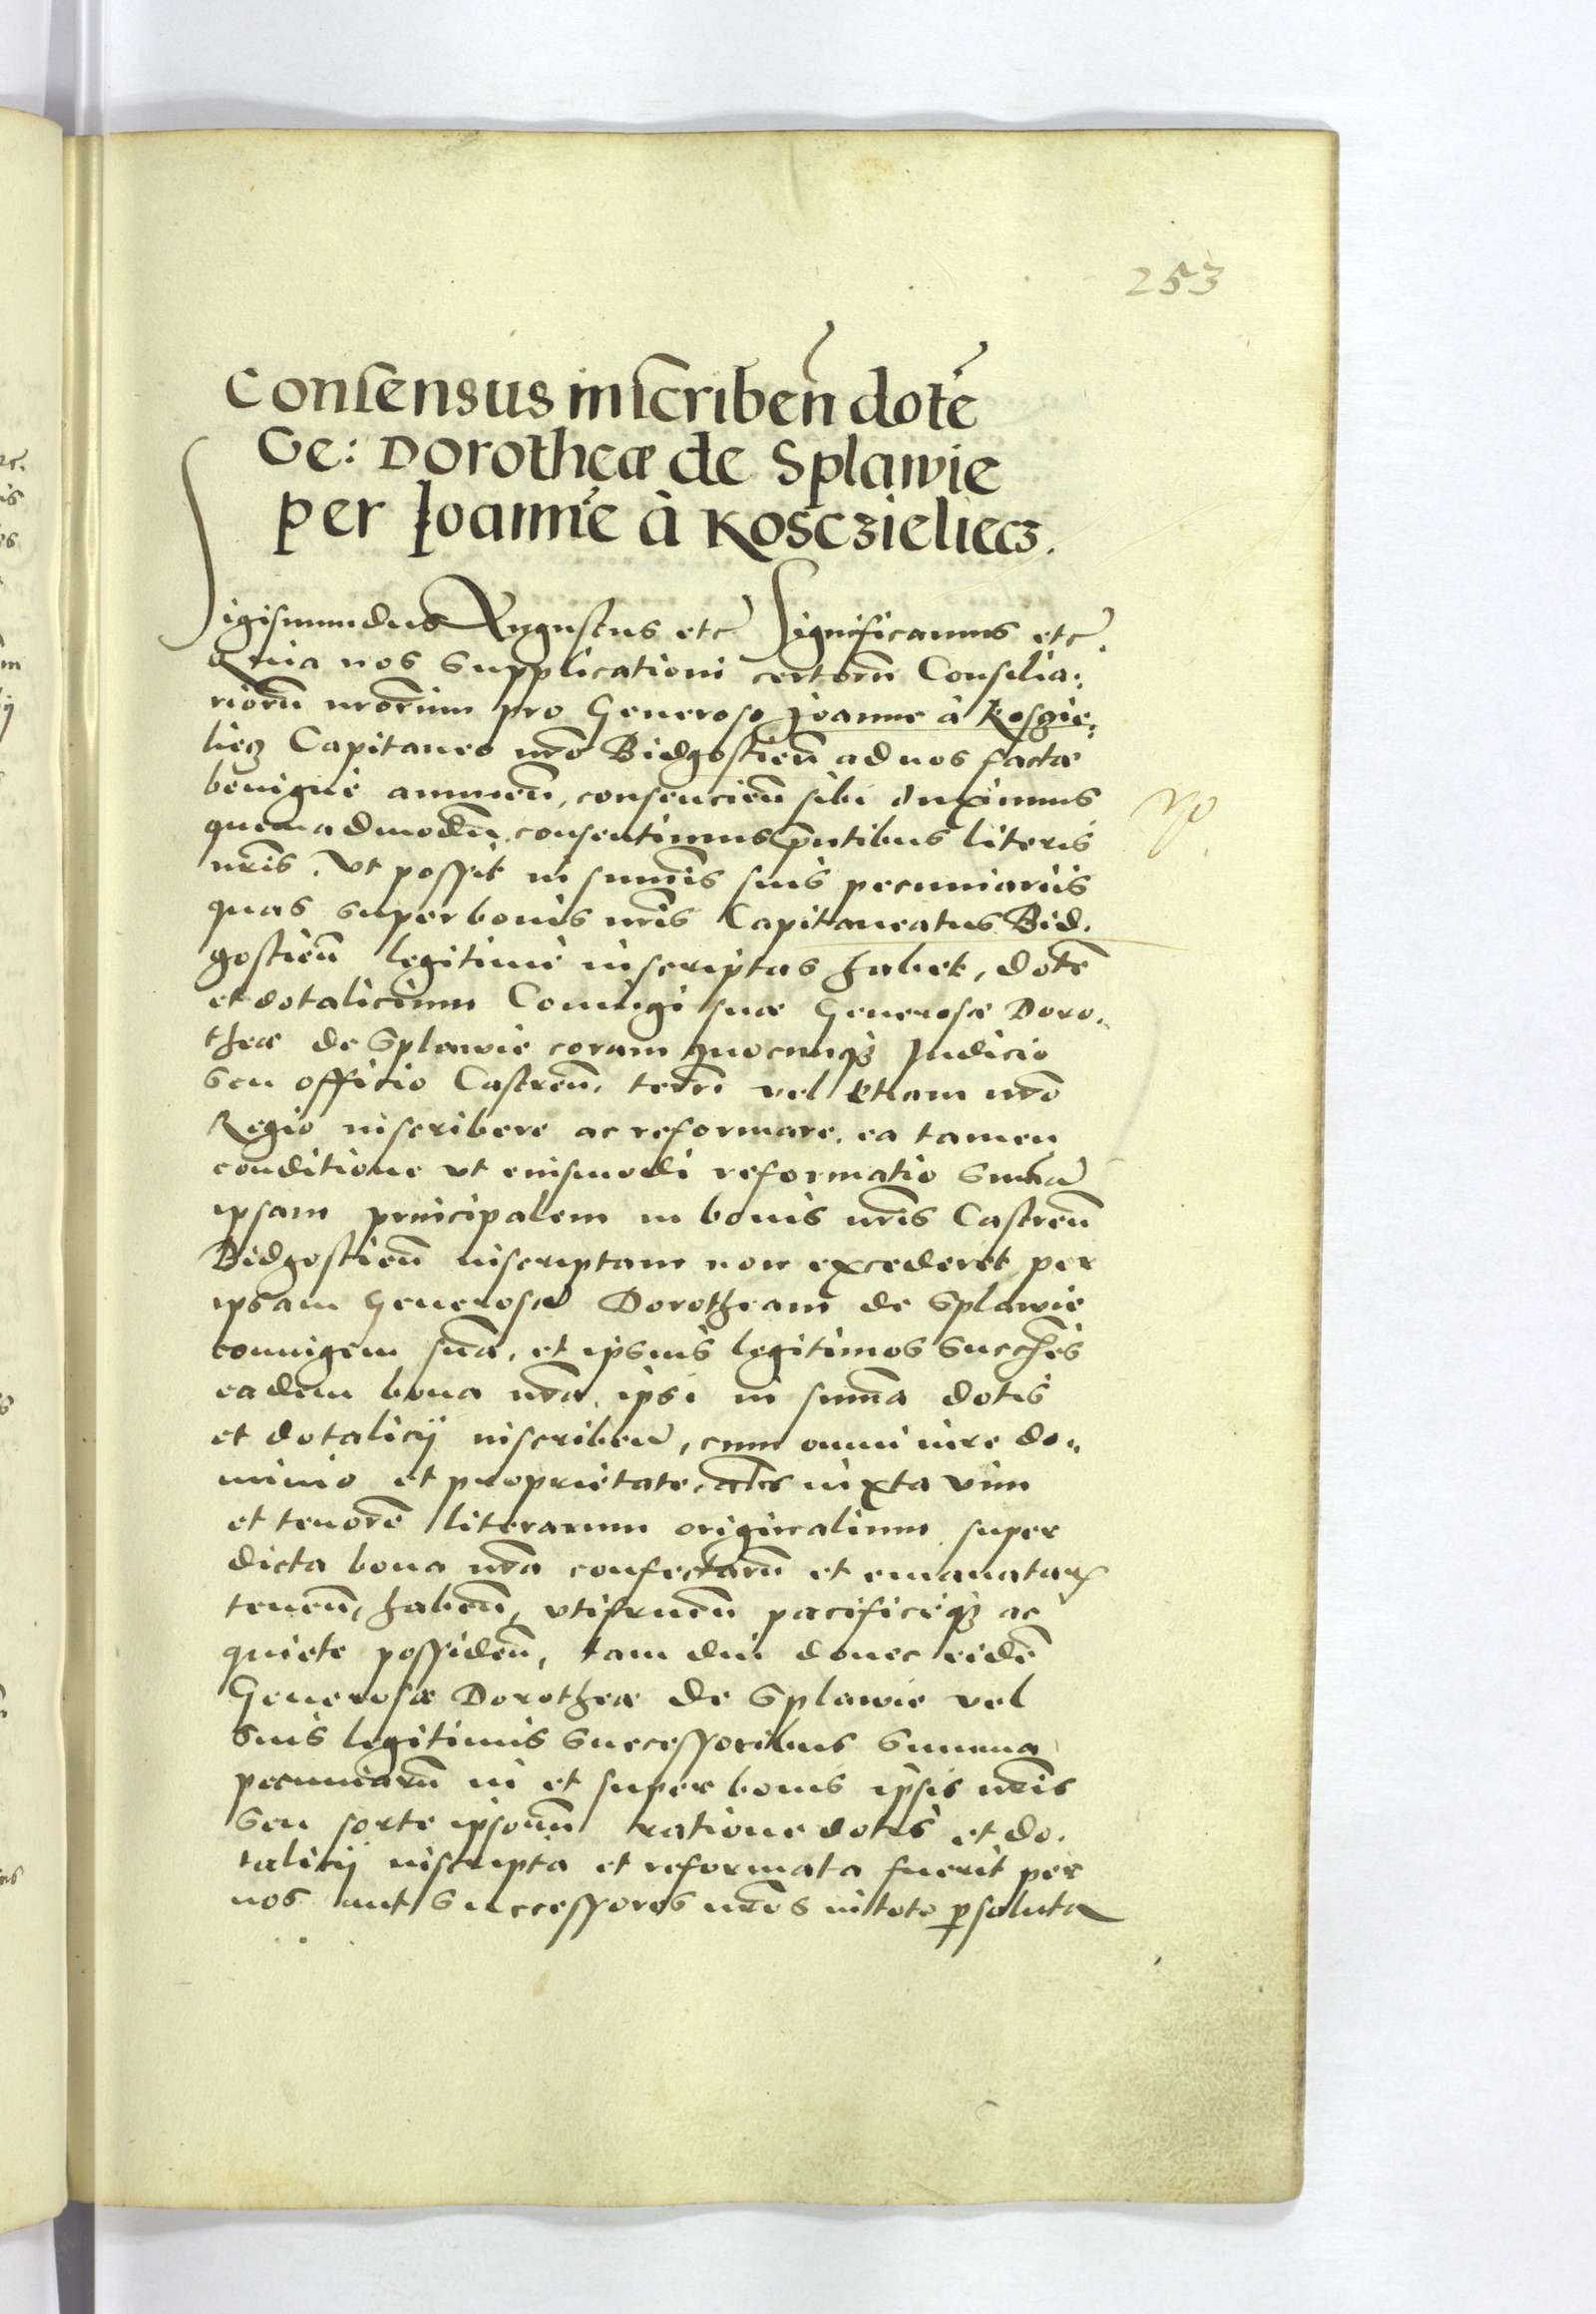 253
Consensus inscriben̄ dotē
Ge: Dorotheæ de Splawie
per Joannē à Kosczieliecz.
Sigismundus Augustus etc̄ Significamus etc̄.
Quia nos supplicationi certorū Consilia:
riorū nrōrum pro Generoso Joanne à Koszie:
liecz Capitaneo nrō Bidgostien̄ ad nos factæ
benignè annuen̄, consencien̄ sibi duximus
quemadmodū consentimus pn̄tibus literis
nrīs. Vt possit in summīs suis pecuniariis
quas super bonis nrīs Capitaneatus Bid.
gostien̄ legitimè inscriptas habet, dotē
et dotalicium Coniugi suæ Generosæ Doro.
theæ de Splawie coram quocunqz Judicio
seu officio Castren̄, terrī vel etiam nrō
Regio inscribere ac reformare, ea tamen
conditione vt eiusmodi reformatio summā
ipsam principalem in bonis nrīs Castren̄
Bidgostien̄ inscriptam non excederet per
ipsam Generosā Dorotheam de Splawie
coniugem suā, et ipsius legitimos succēs
eadem bona nrā, ipsi in summa dotis
et dotalicij inscriben̄, cum omni iure do:
minio et proprietate, als iuxta vim
et tenorē literarum originalium super
dicta bona nrā confectarū et emanatarꝝ
tenen̄, haben̄, vtifruen̄ pacificeqz ac
quiete possiden̄, tam diu donec eidē
Generosæ Dorotheæ de Splawie vel
suis legitimis successoribus summa
pecuniarū in et super bonis ipsis nrīs
seu sorte ipsorū ratione dotis et do.
talicij inscripta et reformata fuerit per
nos aut successores nrōs in toto ꝑsoluta